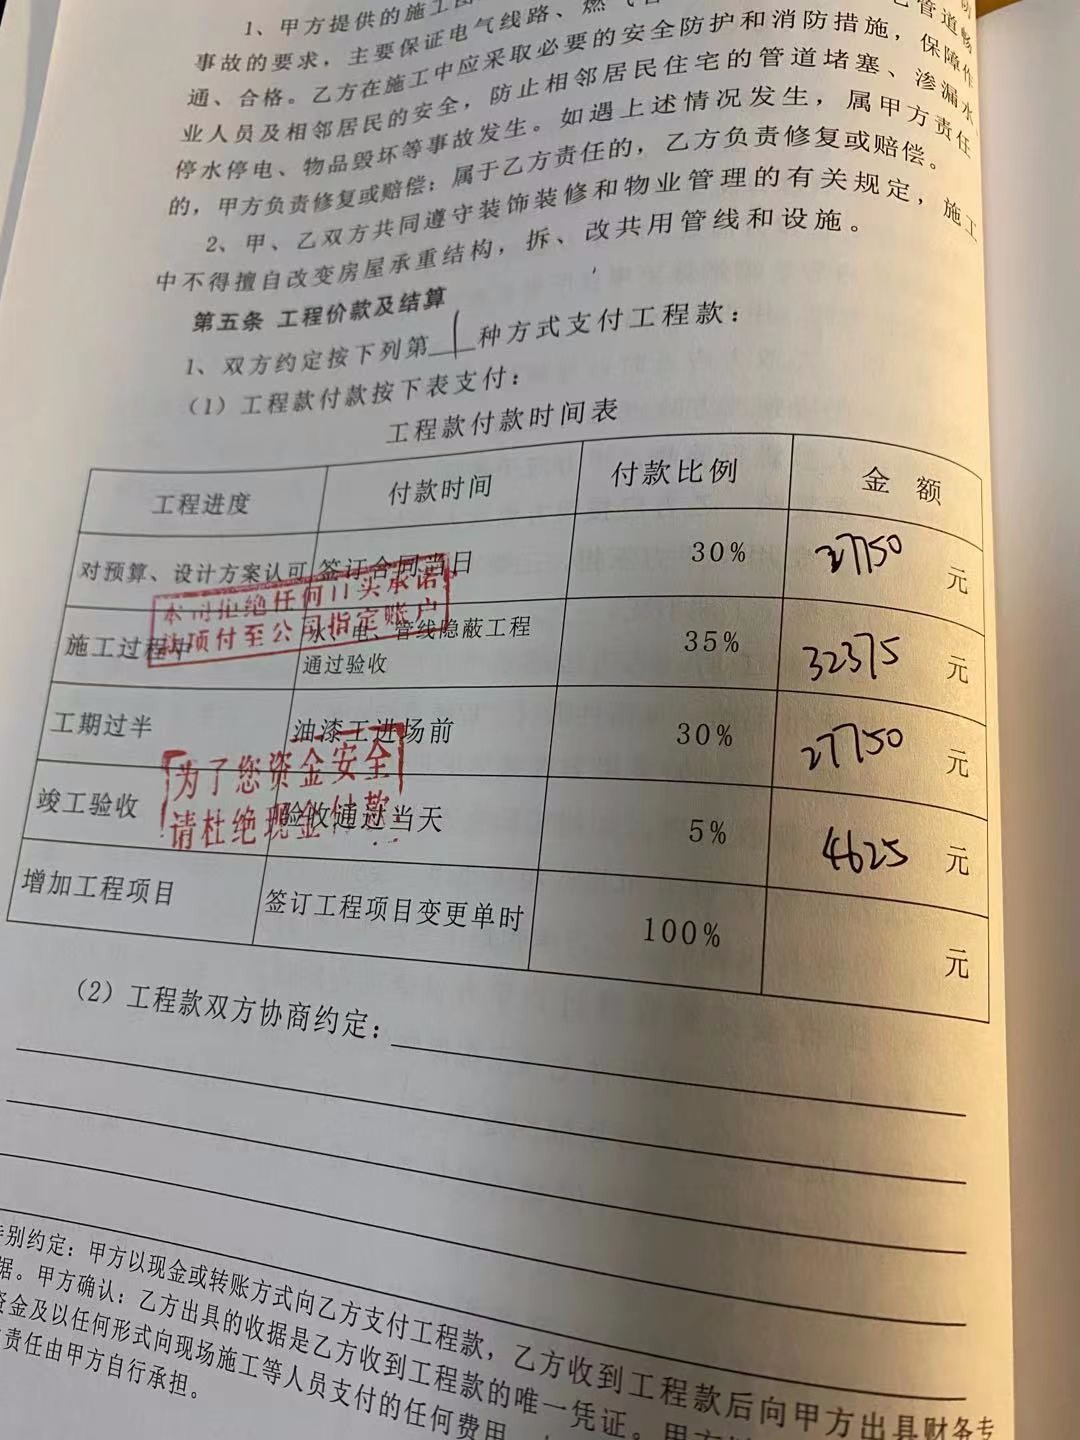 1、甲方提供的施工图
事故的要求，主要保证电气线路、燃气管道畅
通、合格。乙方在施工中应采取必要的安全防护和消防措施，保障作
业人员及相邻居民的安全，防止相邻居民住宅的管道堵塞、渗漏水、
停水停电、物品毁坏等事故发生。如遇上述情况发生，属甲方责任
的，甲方负责修复或赔偿；属于乙方责任的，乙方负责修复或赔偿。
2、甲、乙双方共同遵守装饰装修和物业管理的有关规定，施工
中不得擅自改变房屋承重结构，拆、改共用管线和设施。
第五条 工程价款及结算
1、双方约定按下列第1种方式支付工程款：
（1）工程款付款按下表支付：
工程款付款时间表
工程进度 付款时间 付款比例 金 额
对预算、设计方案认可 签订合同当日 30% 27750 元
本司拒绝任何口头承诺
款项付至公司指定账户
施工过程中 水、电、管线隐蔽工程
通过验收 35% 32375 元
工期过半 油漆工进场前 30% 27750 元
为了您资金安全
请杜绝现金付款
竣工验收 验收通过当天 5% 4625 元
增加工程项目 签订工程项目变更单时 100% 元
（2）工程款双方协商约定：
特别约定：甲方以现金或转账方式向乙方支付工程款，乙方收到工程款后向甲方出具财务专
据。甲方确认：乙方出具的收据是乙方收到工程款的唯一凭证。甲方
资金及以任何形式向现场施工等人员支付的任何费用
责任由甲方自行承担。